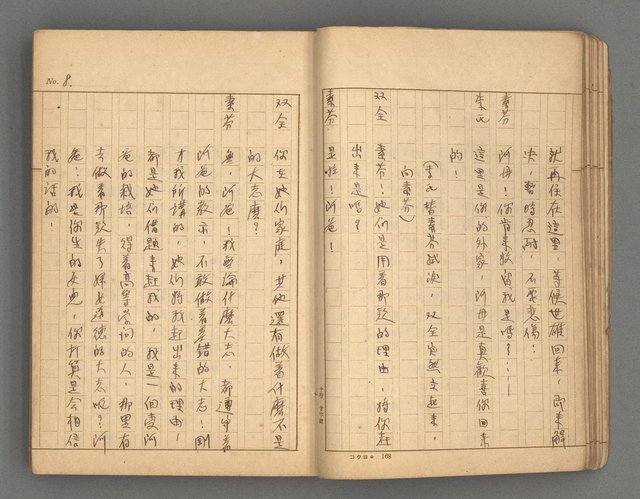 就再住在這里、等候世雄回來，即來解
决，暫時忍耐，不要悲傷…
素芬 阿母！你肯來收留我是嗎？……
李氏 這里是你的外家，阿母是真歡喜你回來
的！
（李氏替素芬拭淚，双全忽然立起來，
向素芬）
双全 素芬！她们是用着那款的理由，將你赶
出來是嗎？
素芬 是啦！阿爸！
コクヨ 168
No. 8.
双全 你在她们家庭，其他還有做着什麼不是
的大志麼？
素芬 無，阿爸！我無論什麼大志，都遵守着
阿爸的教示，不敢做着差錯的大志！剛
才我所講的，她们將我赶出來的理由，
都是她们借題來赶我的，我是一個受阿
爸的栽培，得着高等学问的人，那里有
去做着那款失了婦女道德的大志呢？阿
爸！我是你生的女兒，你打算是会相信
我的话的！